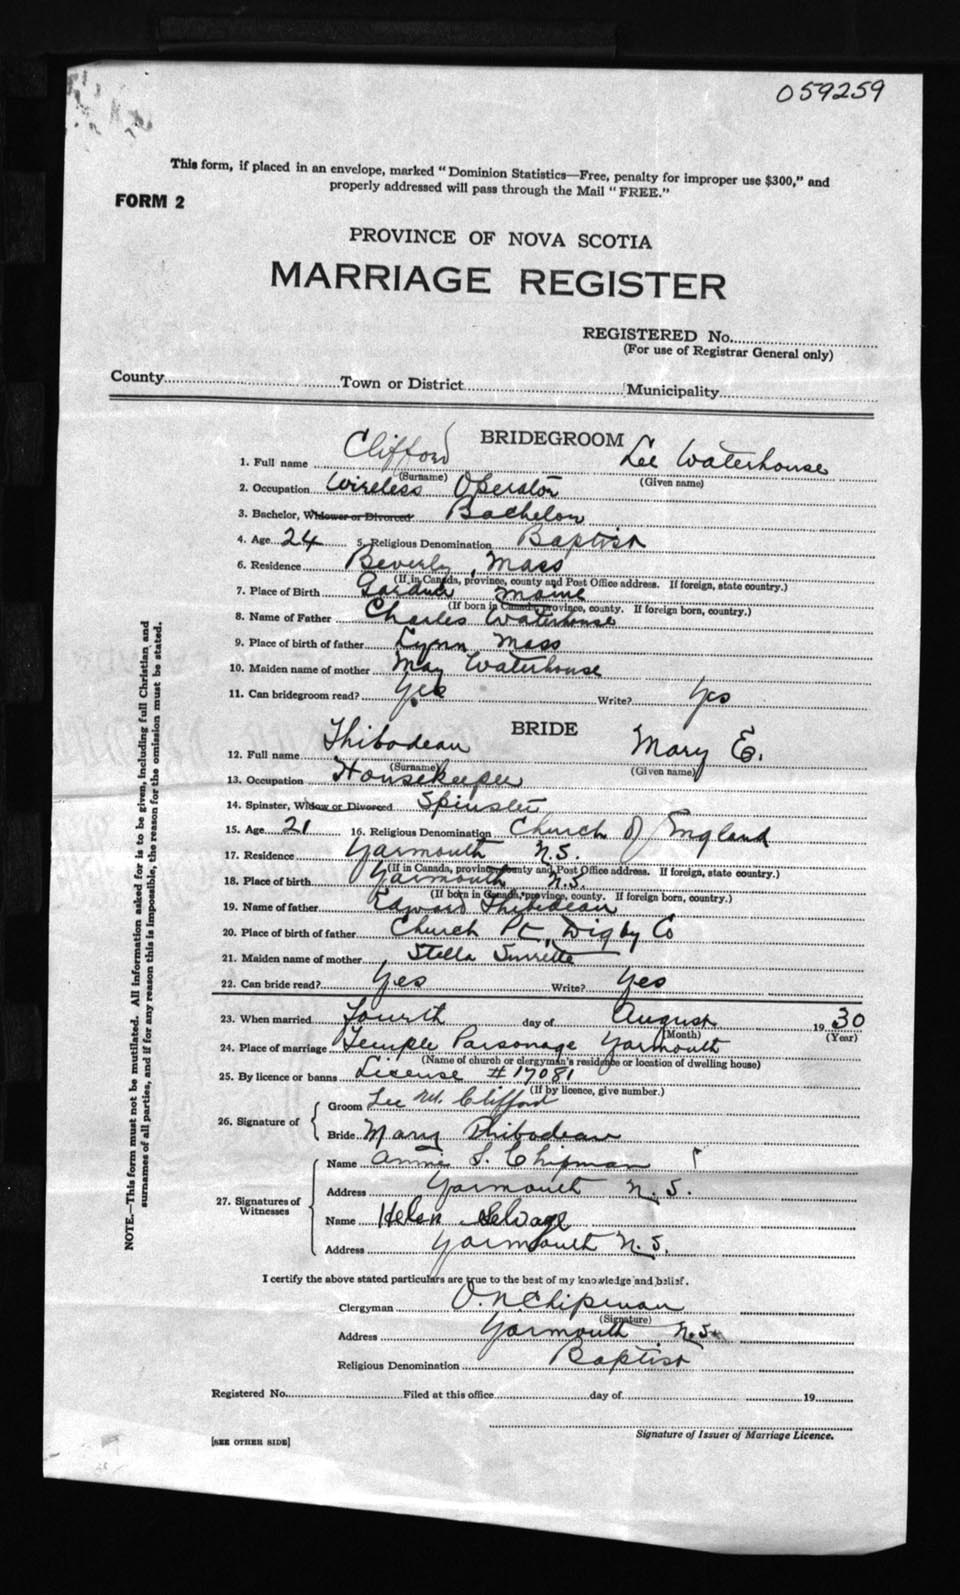 059259
This form, if placed in an envelope, marked "Dominion Statistics—Free, penalty for improper use $300," and
properly addressed will pass through the Mail "FREE."
FORM 2
PROVINCE OF NOVA SCOTIA
MARRIAGE REGISTER
REGISTERED No.
(For use of Registrar General only)
County Town or District Municipality
BRIDEGROOM
1. Full name Clifford Lee Waterhouse
(Surname) (Given name)
2. Occupation Wireless Operator
3. Bachelor, Widower or Divorced Bachelor
4. Age 24 5. Religious Denomination Baptist
6. Residence Beverly, Mass
(If in Canada, province, county and Post Office address. If foreign, state country.)
7. Place of Birth Maine
(If born in Canada, province, county. If foreign born, country.)
8. Name of Father Charles Waterhouse
9. Place of birth of father Lynn Mass
10. Maiden name of mother May Waterhouse
11. Can bridegroom read? Yes Write? Yes
BRIDE
12. Full name Thibodeau Mary E.
(Surname) (Given name)
13. Occupation Housekeeper
14. Spinster, Widow or Divorced Spinster
15. Age 21 16. Religious Denomination Church of England
17. Residence Yarmouth N.S.
(If in Canada, province, county and Post Office address. If foreign, state country.)
18. Place of birth Yarmouth N.S.
(If born in Canada, province, county. If foreign born, country.)
19. Name of father Edward Thibodeau
20. Place of birth of father Church Pt, Digby Co
21. Maiden name of mother Stella Surrette
22. Can bride read? Yes Write? Yes
23. When married Fourth day of August 1930
(Month) (Year)
24. Place of marriage Temple Parsonage Yarmouth
(Name of church or clergyman's residence or location of dwelling house)
25. By licence or banns License #17081
(If by licence, give number.)
26. Signature of Groom Lee W. Clifford
Bride Mary Thibodeau
27. Signatures of Witnesses
Name Annie S. Chipman
Address Yarmouth N.S.
Name Helen Selvage
Address Yarmouth N.S.
I certify the above stated particulars are true to the best of my knowledge and belief.
Clergyman O. N. Chipman
(Signature)
Address Yarmouth N.S.
Religious Denomination Baptist
Registered No. Filed at this office day of 19
Signature of Issuer of Marriage Licence.
[SEE OTHER SIDE]
NOTE.—This form must not be mutilated. All information asked for is to be given, including full Christian and
surnames of all parties, and if for any reason this is impossible, the reason for the omission must be stated.